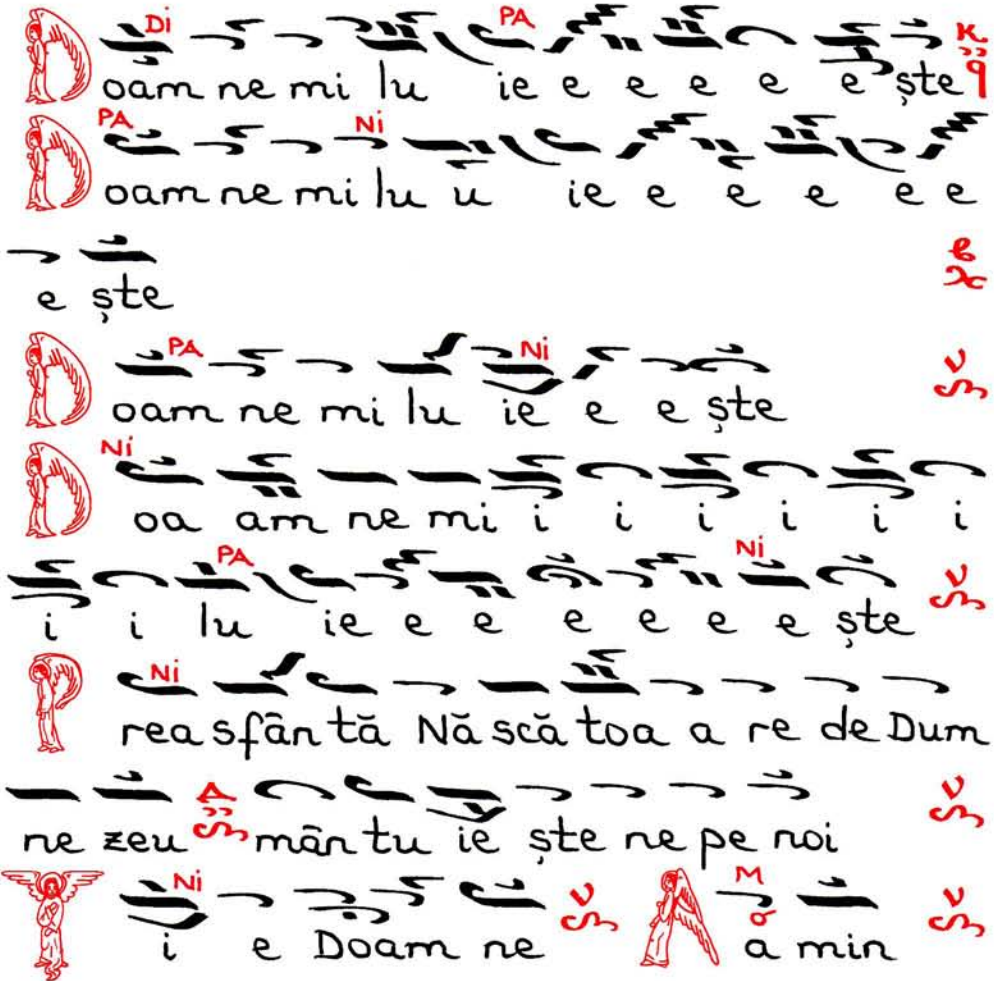 Di PA K
Doam ne mi lu ie e e e e e ște q
PA Ni
Doam ne mi lu u ie e e e e e
e ște
PA Ni
Doam ne mi lu ie e e ște
Ni
Doa am ne mi i i i i i i
PA Ni
i i lu ie e e e e e e ște
Ni
Prea sfân tă Nă scă toa a re de Dum
ne zeu mân tu ie ște ne pe noi
Ni M
Ți e Doam ne A a min